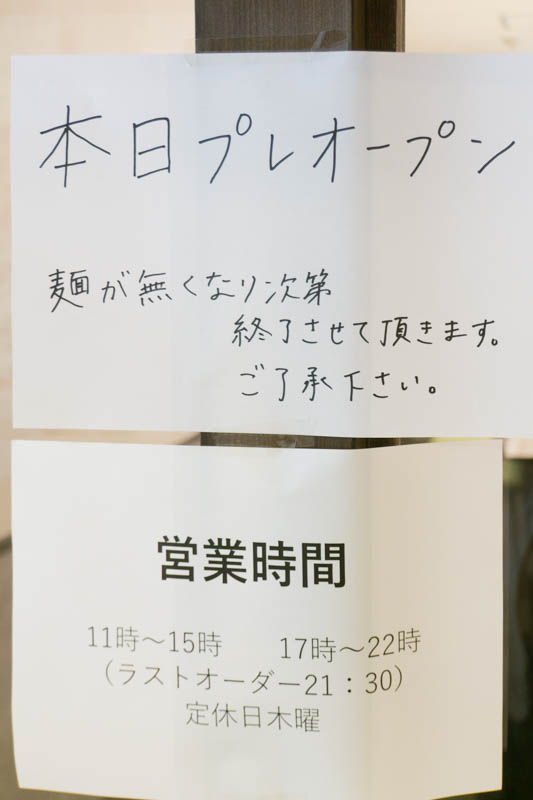 本日プレオープン
麺が無くなり次第
終了させて頂きます。
ご了承下さい。
営業時間
11時～15時　17時～22時
（ラストオーダー21：30）
定休日木曜